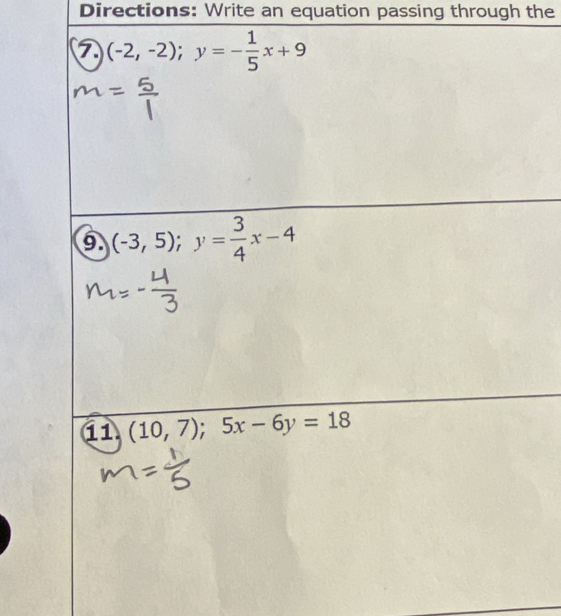 Directions: Write an equation passing through the
7. (-2, -2); y = -1/5 x + 9
m = 5/1
9. (-3, 5); y = 3/4 x - 4
m = -4/3
11. (10, 7); 5x - 6y = 18
m = 1/5